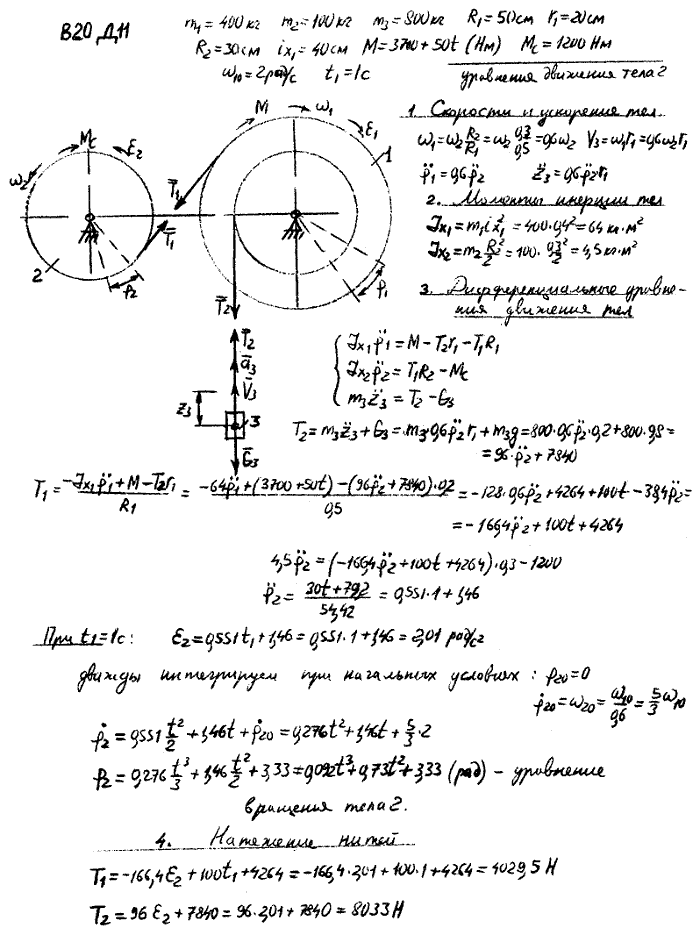 В20 Д11
m₁ = 400 кг m₂ = 100 кг m₃ = 800 кг R₁ = 50 см r₁ = 20 см
R₂ = 30 см ix₁ = 40 см M = 3700 + 50t (Нм) Mc = 1200 Нм
ω₁₀ = 2 рад/с t₁ = 1с уравнения движения тела 2
1. Скорости и ускорения тел
ω₁ = ω₂ R₂/R₁ = ω₂ 0,3/0,5 = 0,6ω₂ V₃ = ω₁r₁ = 0,6ω₂r₁
φ̈₁ = 0,6φ̈₂ z̈₃ = 0,6φ̈₂r₁
2. Моменты инерции тел
Jx₁ = m₁ix₁² = 400·0,4² = 64 кг·м²
Jx₂ = m₂ R₂²/2 = 100· 0,3²/2 = 4,5 кг·м²
3. Дифференциальные уравне-
ния движения тел
Mc
ε₂
ω₂
M
ω₁
ε₁
1
T̅₁
T̅₁
2
φ₂
φ₁
T̅₂
T̅₂
a̅₃
V̅₃
z₃
3
G̅₃
Jx₁φ̈₁ = M - T₂r₁ - T₁R₁
Jx₂φ̈₂ = T₁R₂ - Mc
m₃z̈₃ = T₂ - G₃
T₂ = m₃z̈₃ + G₃ = m₃·0,6φ̈₂r₁ + m₃g = 800·0,6φ̈₂·0,2 + 800·9,8 =
= 96·φ̈₂ + 7840
T₁ = (-Jx₁φ̈₁ + M - T₂r₁)/R₁ = (-64φ̈₁ + (3700 + 50t) - (96φ̈₂ + 7840)·0,2)/0,5 = -128·0,6φ̈₂ + 4264 + 100t - 38,4φ̈₂ =
= -166,4φ̈₂ + 100t + 4264
4,5φ̈₂ = (-166,4φ̈₂ + 100t + 4264)·0,3 - 1200
φ̈₂ = (30t + 79,2)/54,42 = 0,551·1 + 1,46
При t₁ = 1с: ε₂ = 0,551t₁ + 1,46 = 0,551·1 + 1,46 = 2,01 рад/с²
дважды интегрируем при начальных условиях: φ₂₀ = 0
φ̇₂₀ = ω₂₀ = ω₁₀/0,6 = 5/3 ω₁₀
φ̇₂ = 0,551 t²/2 + 1,46t + φ̇₂₀ = 0,276t² + 1,46t + 5/3·2
φ₂ = 0,276 t³/3 + 1,46 t²/2 + 3,33 = 0,092t³ + 0,73t² + 3,33 (рад) - уравнение
вращения тела 2.
4. Натяжение нитей
T₁ = -166,4ε₂ + 100t₁ + 4264 = -166,4·2,01 + 100·1 + 4264 = 4029,5 Н
T₂ = 96ε₂ + 7840 = 96·2,01 + 7840 = 8033 Н